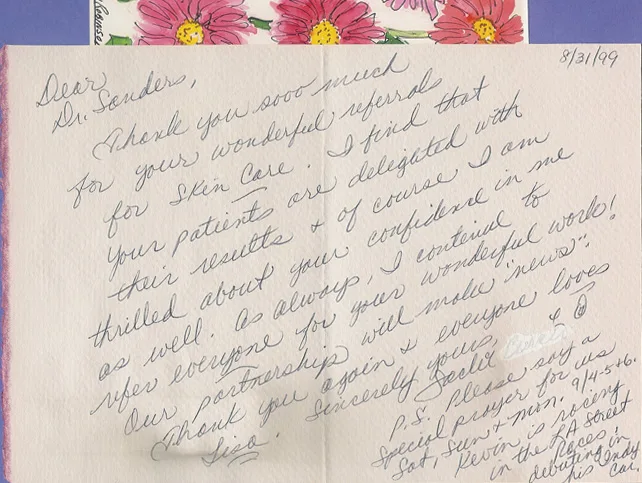 Robinson
8/31/99
Dear
Dr. Sanders,
Thank you sooo much
for your wonderful referrals
for Skin Care. I find that
your patients are delighted with
their results & of course I am
thrilled about your confidence in me
as well. As always, I contenue to
refer everyone for your wonderful work!
Our partnership will make "news".
Thank you again & everyone loves
Lisa. Sincerely yours, &
P.S. Please say a
special prayer for us
Sat, Sun & Mon. 9/4-5+6.
Kevin is racing
in the LA Street
Races!
debuting in
his Indy
Car.